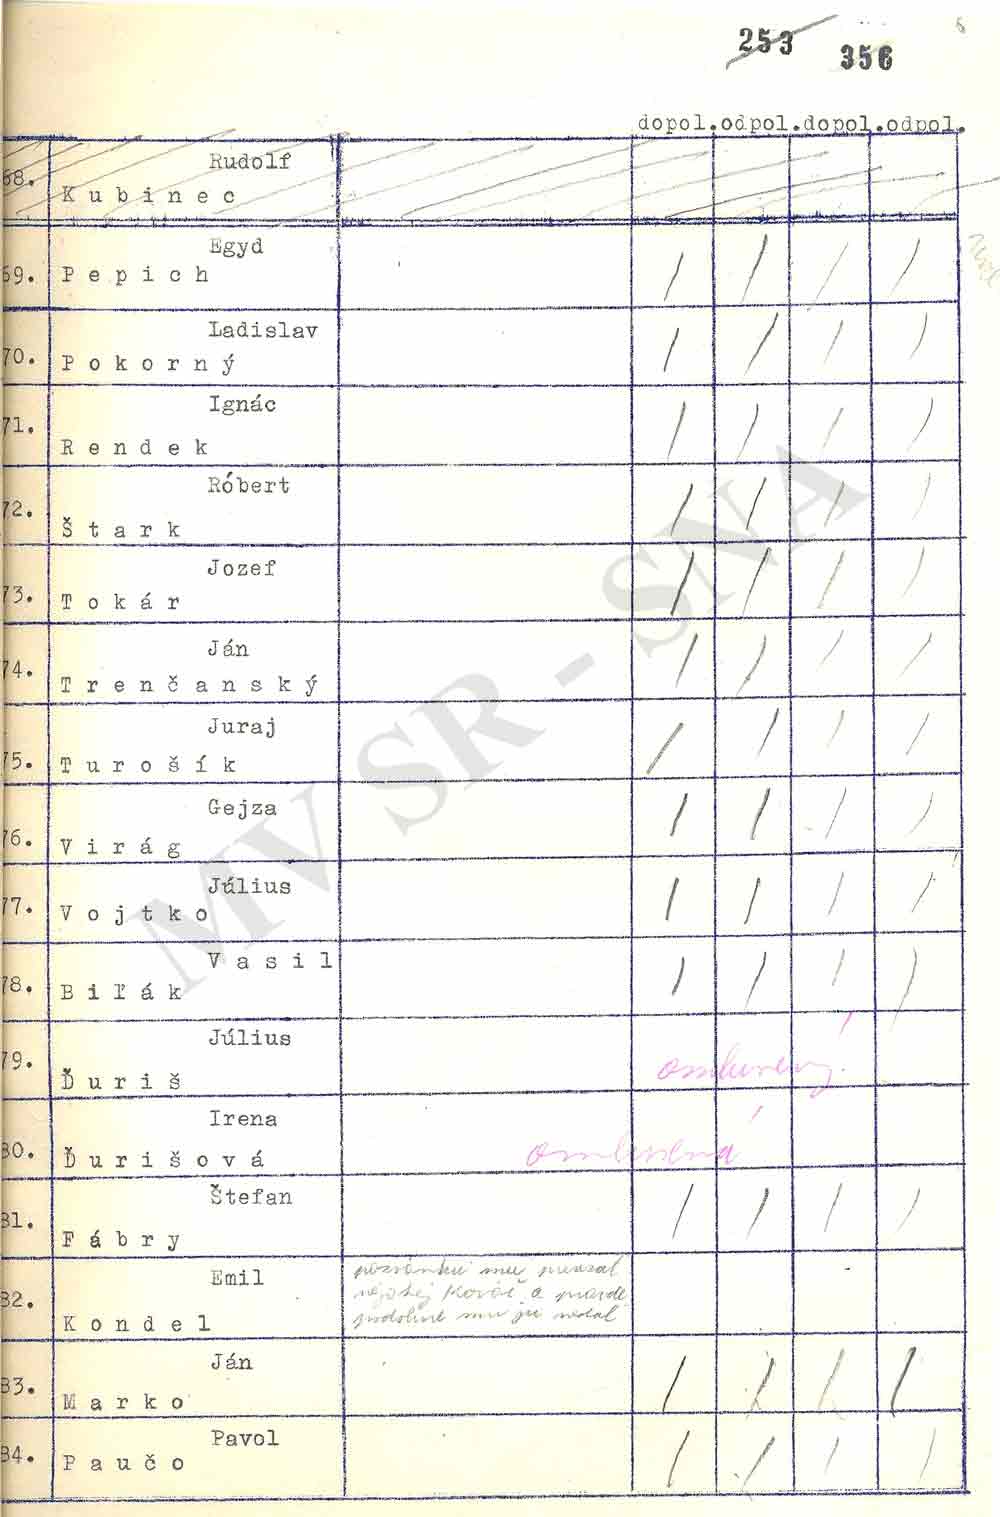 253 356
dopol. odpol. dopol. odpol.
68. Rudolf
Kubinec
69. Egyd
Pepich
70. Ladislav
Pokorný
71. Ignác
Rendek
72. Róbert
Štark
73. Jozef
Tokár
74. Ján
Trenčanský
75. Juraj
Turošík
76. Gejza
Virág
77. Július
Vojtko
78. Vasil
Biľák
79. Július
Ďuriš omluvený
80. Irena
Ďurišová omluvená
81. Štefan
Fábry
82. Emil
Kondel
pozvánku mu prevzal
Kováč a pravde
podobne mu ju nedal
83. Ján
Marko
84. Pavol
Paučo
MV SR - SNA